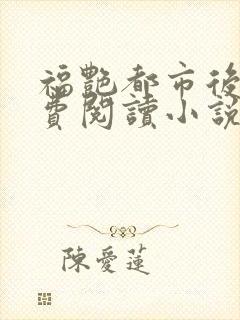 福艷都市後
費閱讀小説
陳愛蓮